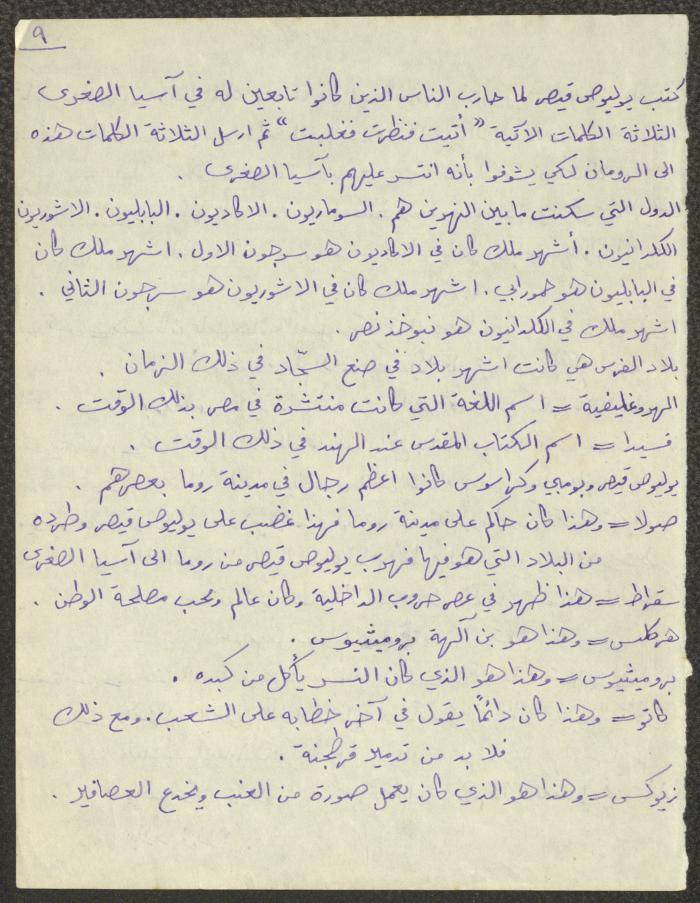 ٩
كتب يوليوس قيصر لما حارب الناس الذين كانوا تابعين له في آسيا الصغرى
الثلاثة الكلمات الآتية "أتيت فنظرت فغلبت" ثم ارسل الثلاثة الكلمات هذه
الى الرومان لكي يشوفوا بأنه انتسر عليهم بآسيا الصغرى .
الدول التي سكنت ما بين النهرين هم . السوماريون . الاكاديون . البابليون . الاشوريون
الكلدانيون . أشهر ملك كان في الاكاديون هو سرجون الاول . اشهر ملك كان
في البابليون هو حمورابي . اشهر ملك كان في الاشوريون هو سرجون الثاني .
اشهر ملك في الكلدانيون هو نبوخذ نصر .
بلاد الفرس هي كانت اشهر بلاد في صنع السجّاد في ذلك الزمان .
الهروغليفية = اسم اللغة التي كانت منتشرة في مصر بذلك الوقت .
فيدا = اسم الكتاب المقدس عند الهند في ذلك الوقت .
يوليوس قيصر وبومبي وكراسوس كانوا اعظم رجال في مدينة روما بعصرهم .
صولا = وهذا كان حاكم على مدينة روما فهذا غضب على يوليوس قيصر وطرده
من البلاد التي هو فيها فهرب يوليوس قيصر من روما الى آسيا الصغرى
سقراط = هذا ظهر في عصر حروب الداخلية وكان عالم ويحب مصلحة الوطن .
هركلس = وهذا هو بن آلهة بروميثيوس .
بروميثيوس = وهذا هو الذي كان النسر يأكل من كبده .
كاتو = وهذا كان دائمًا يقول في آخر خطابه على الشعب . ومع ذلك
فلا بد من تدمير قرطجنة .
زيوكس = وهذا هو الذي كان يعمل صورة من العنب ويخدع العصافير .